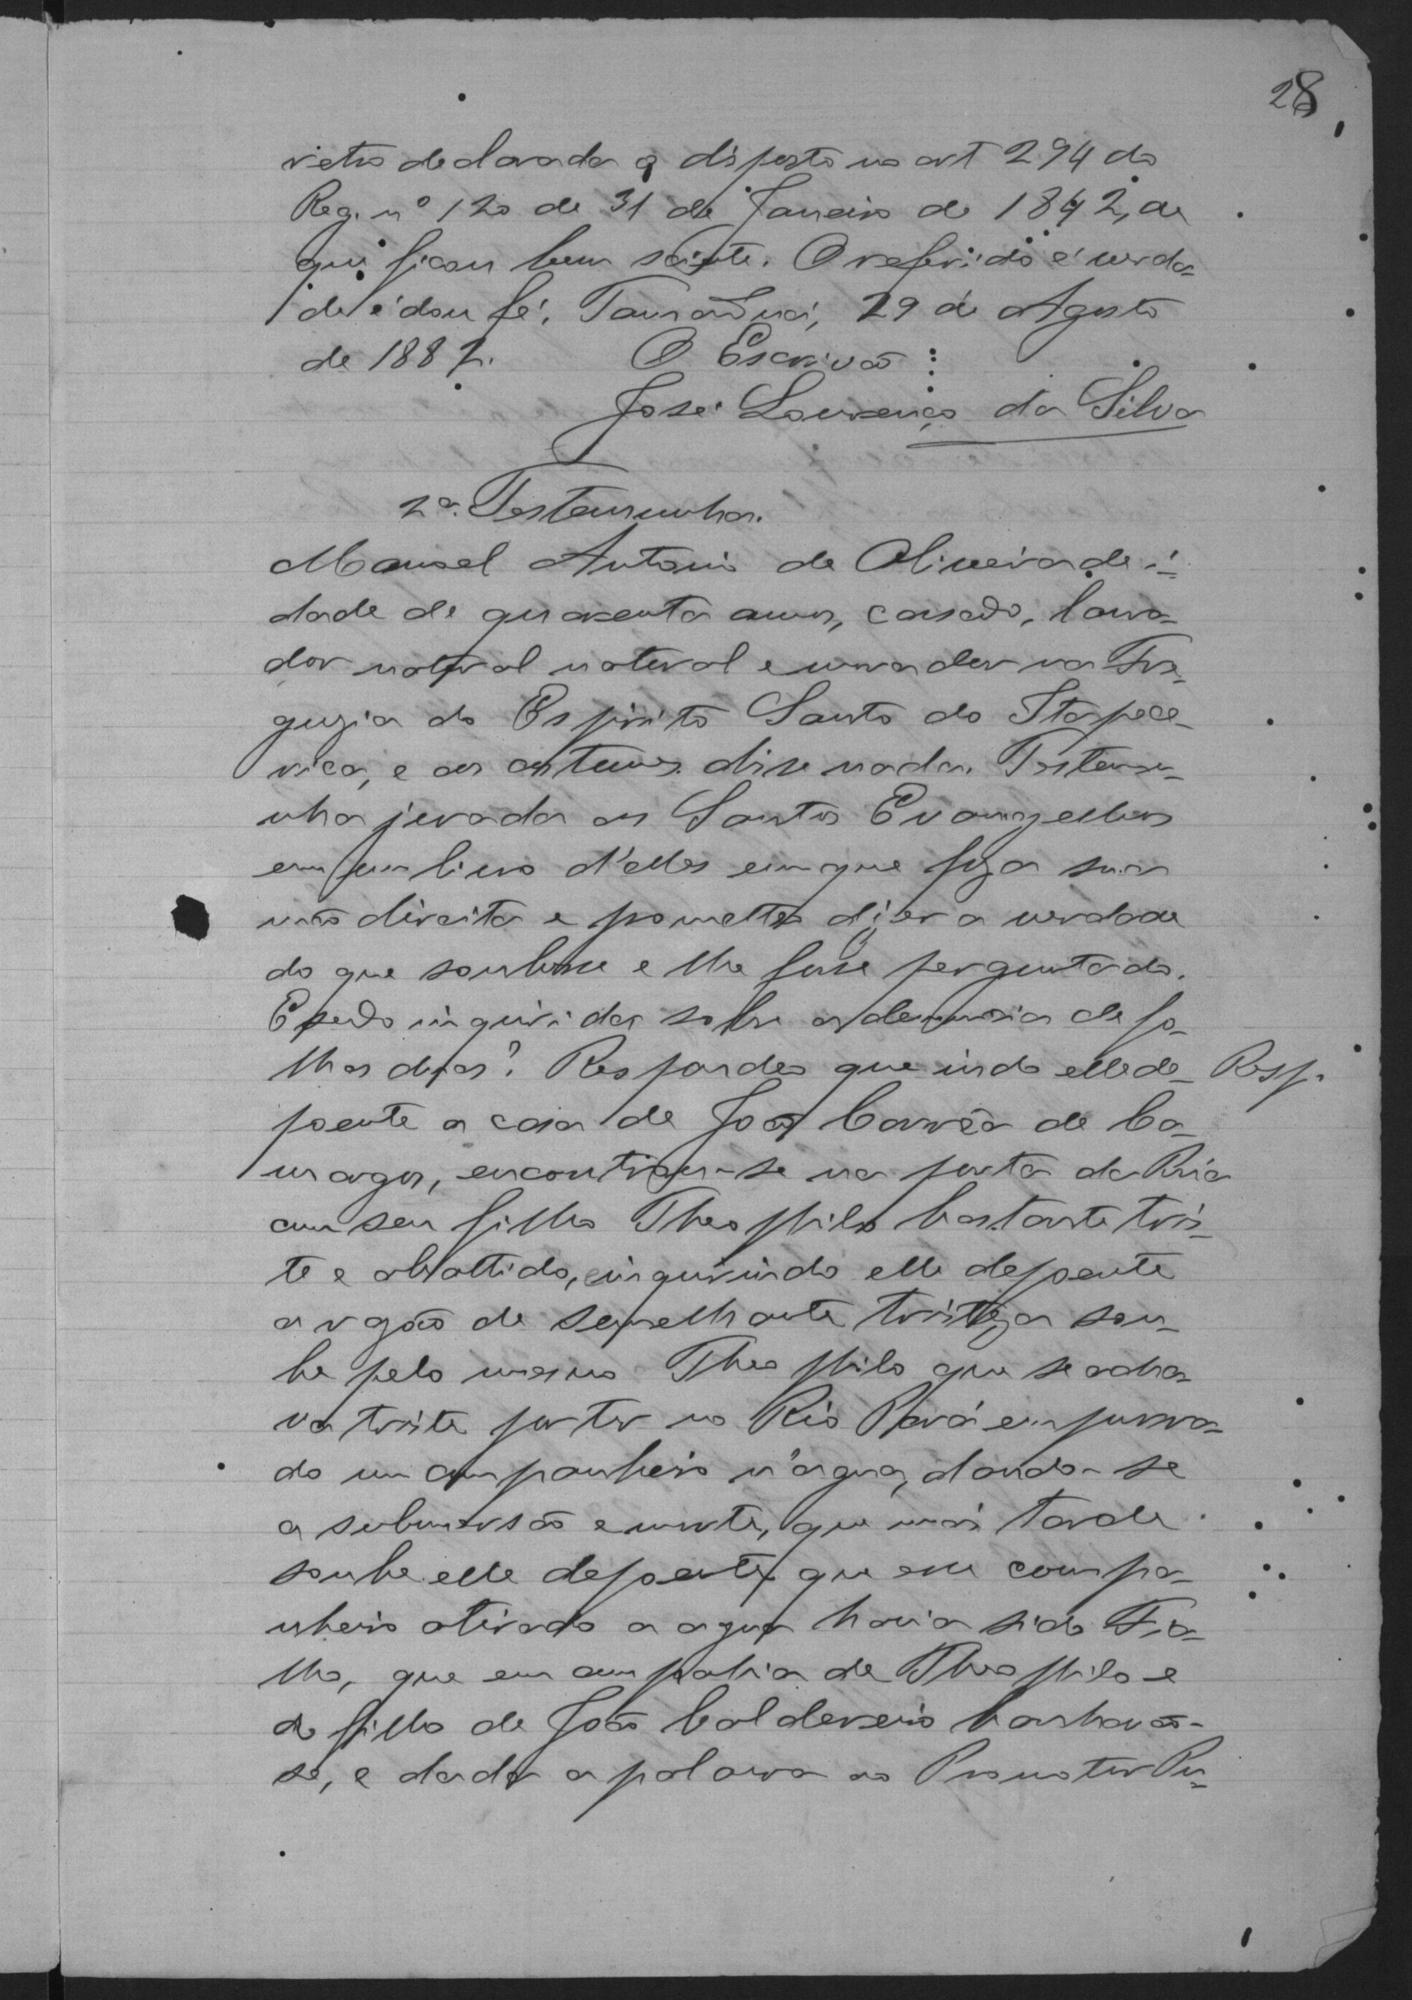 28
retro declarada o disposto no art 294 do
Reg. nº 120 de 31 de Janeiro de 1842, de
que ficou bem sciente. O referido é verda-
de é dou fé. Tamanduá, 29 de Agosto
de 1887. O Escrivão
José Lourenço da Silva
2ª. Testemunha.
Manoel Antonio de Oliveira de i-
dade de quarenta annos, casado, lavra-
dor natural natural e morador na Fre-
guzia do Espirito Santo do Itapece-
rica, e aos costumes disse nada. Testemu-
nha jurada aos Santos Evangelhos
em um livro d'elles em que poz a sua
mão direita e prometteo dizer a verdade
do que soubesse e lhe fosse perguntado.
E sendo inquirida sobre a denuncia de fo-
lhas duas? Respondeo que indo elle de- Resp.
poente a casa de João Corrêa de Ca-
margos, encontrou-se na porta da Rua
com seu filho Theophilo bastante tris-
te e abattido, inquirindo elle depoente
a rasão de semelhante tristeza sou-
be pelo mesmo Theophilo que se acha-
va triste por ter no Rio Pará empurra-
do um companheiro n'agua, dando-se
a submersão e morte, que mais tarde
soube elle depoente que esse compa-
nheiro atirado a agua havia sido Fia-
lho, que em companhia de Theophilo e
do filho de João Caldereiro banhavão-
se, e dada a palavra ao Promotor Pu-